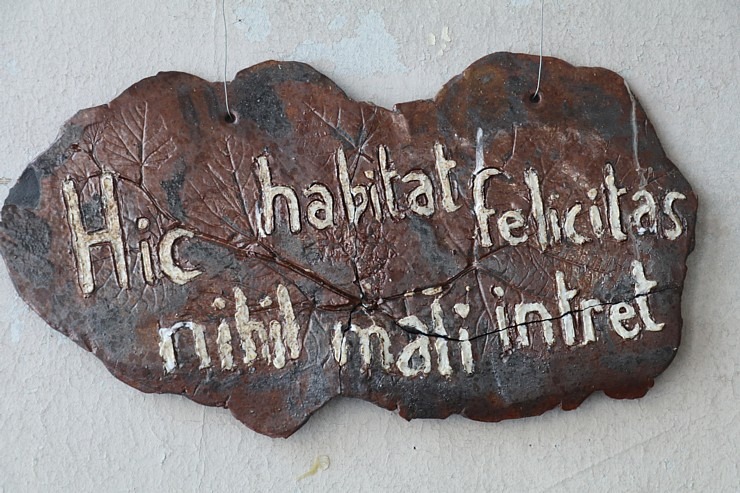 Hic habitat felicitas
nihil mali intret